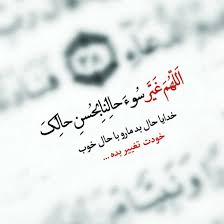 اَللّهُمَّ غَیِّر سُوءَ حالِنا بِحُسنِ حالِکَ
خدایا حال بد مارو با حال خوب
خودت تغییر بده ...